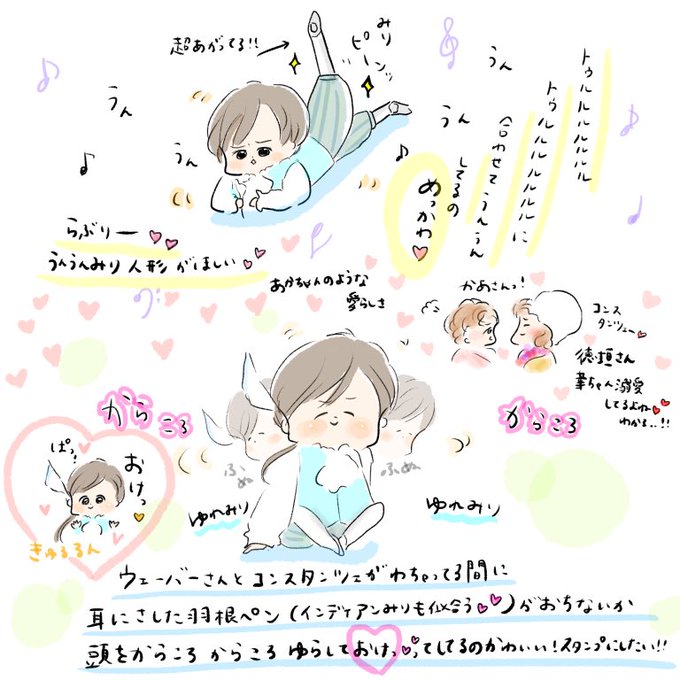 超あがってる!!
みり
ピーンッ
うん
うん
うん
うん
トゥルルルルルル
トゥルルルルルルに
合わせてうんうん
してるの
めっかわ
らぶりー
うんうんみり人形がほしい
あかちゃんのような
愛らしさ
かあさんっ!
コンス
タンツェ
徳垣さん
華ちゃん溺愛
してるよね
わかる..!!
からころ
からころ
ふぬ
ふぬ
ゆれみり
ゆれみり
ぱっ!
おけっ
きゅるるん
ウェーバーさんとコンスタンツェがわちゃってる間に
耳にさした羽根ペン(インディアンみりも似合う)がおちないか
頭をからころからころゆらしておけっってしてるのかわいい!スタンプにしたい!!